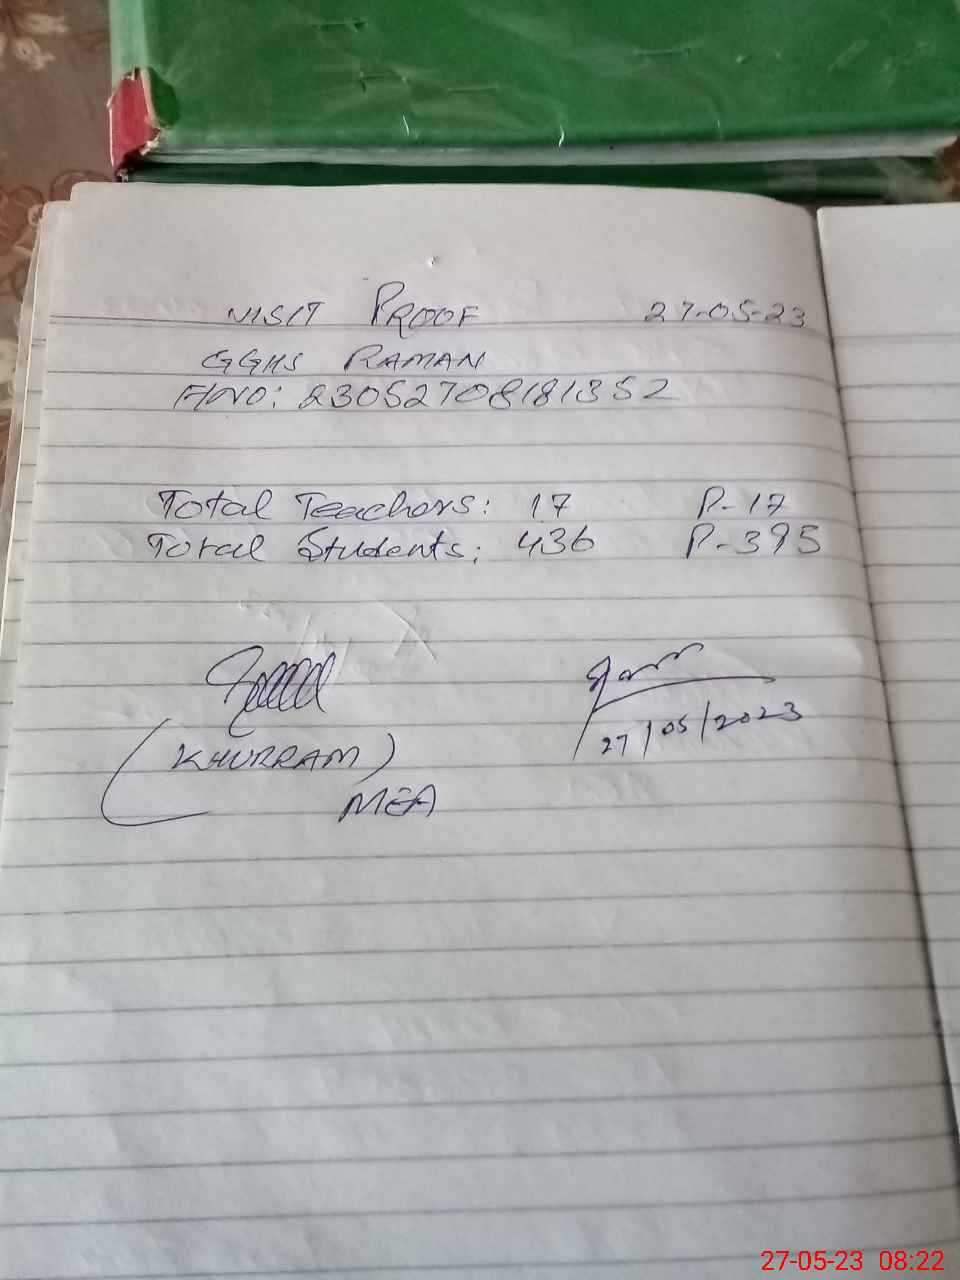 VISIT PROOF 27-05-23
GGHS RAMAN
F/NO: 23052708181352
Total Teachers: 17 P-17
Total Students: 436 P-395
27/05/2023
(KHURRAM)
MEA
27-05-23 08:22